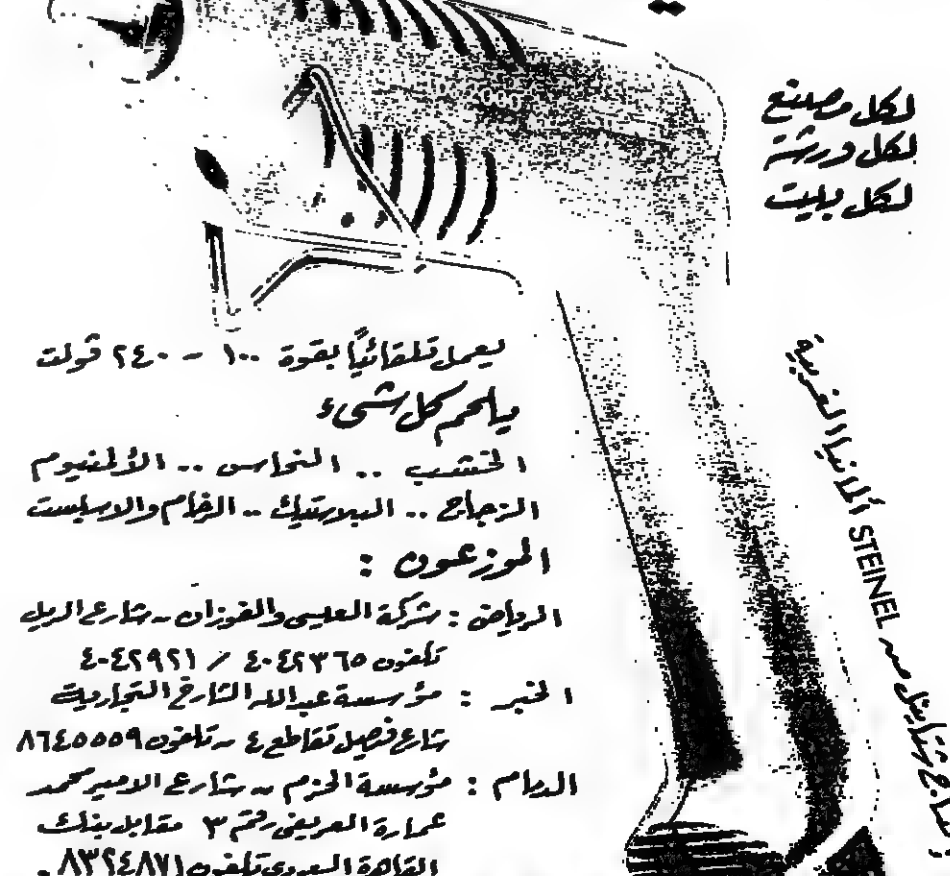 لكل مصنع
لكل ورشة
لكل بيت
يعمل تلقائياً بقوة ١٠٠ - ٢٤٠ فولت
يلحم كل شيء
الخشب .. النحاس .. الألمنيوم
الزجاج .. البلاستيك .. الرخام والاسبست
الموزعون :
الرياض : شركة العليسي والفوزان - شارع الريل
تلفون ٤٠٤٢٣٦٥ / ٤٠٤٢٩٢١
الخبر : مؤسسة عبدالله الشارخ التجارية
شارع فيصل تقاطع ٤ - تلفون ٨٦٤٥٥٥٩
الدمام : مؤسسة الحزم - شارع الامير محمد
عمارة العريفي رقم ٣ مقابل بنك
القاهرة السعودي تلفون ٨٣٢٤٨٧١
شتاينل من STEINEL ألمانيا الغربية